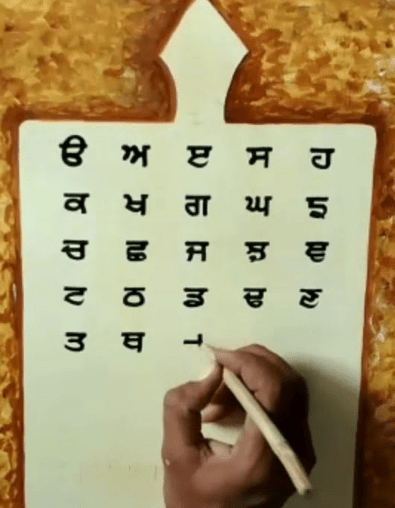 ੳ ਅ ੲ ਸ ਹ
ਕ ਖ ਗ ਘ ਙ
ਚ ਛ ਜ ਝ ਞ
ਟ ਠ ਡ ਢ ਣ
ਤ ਥ